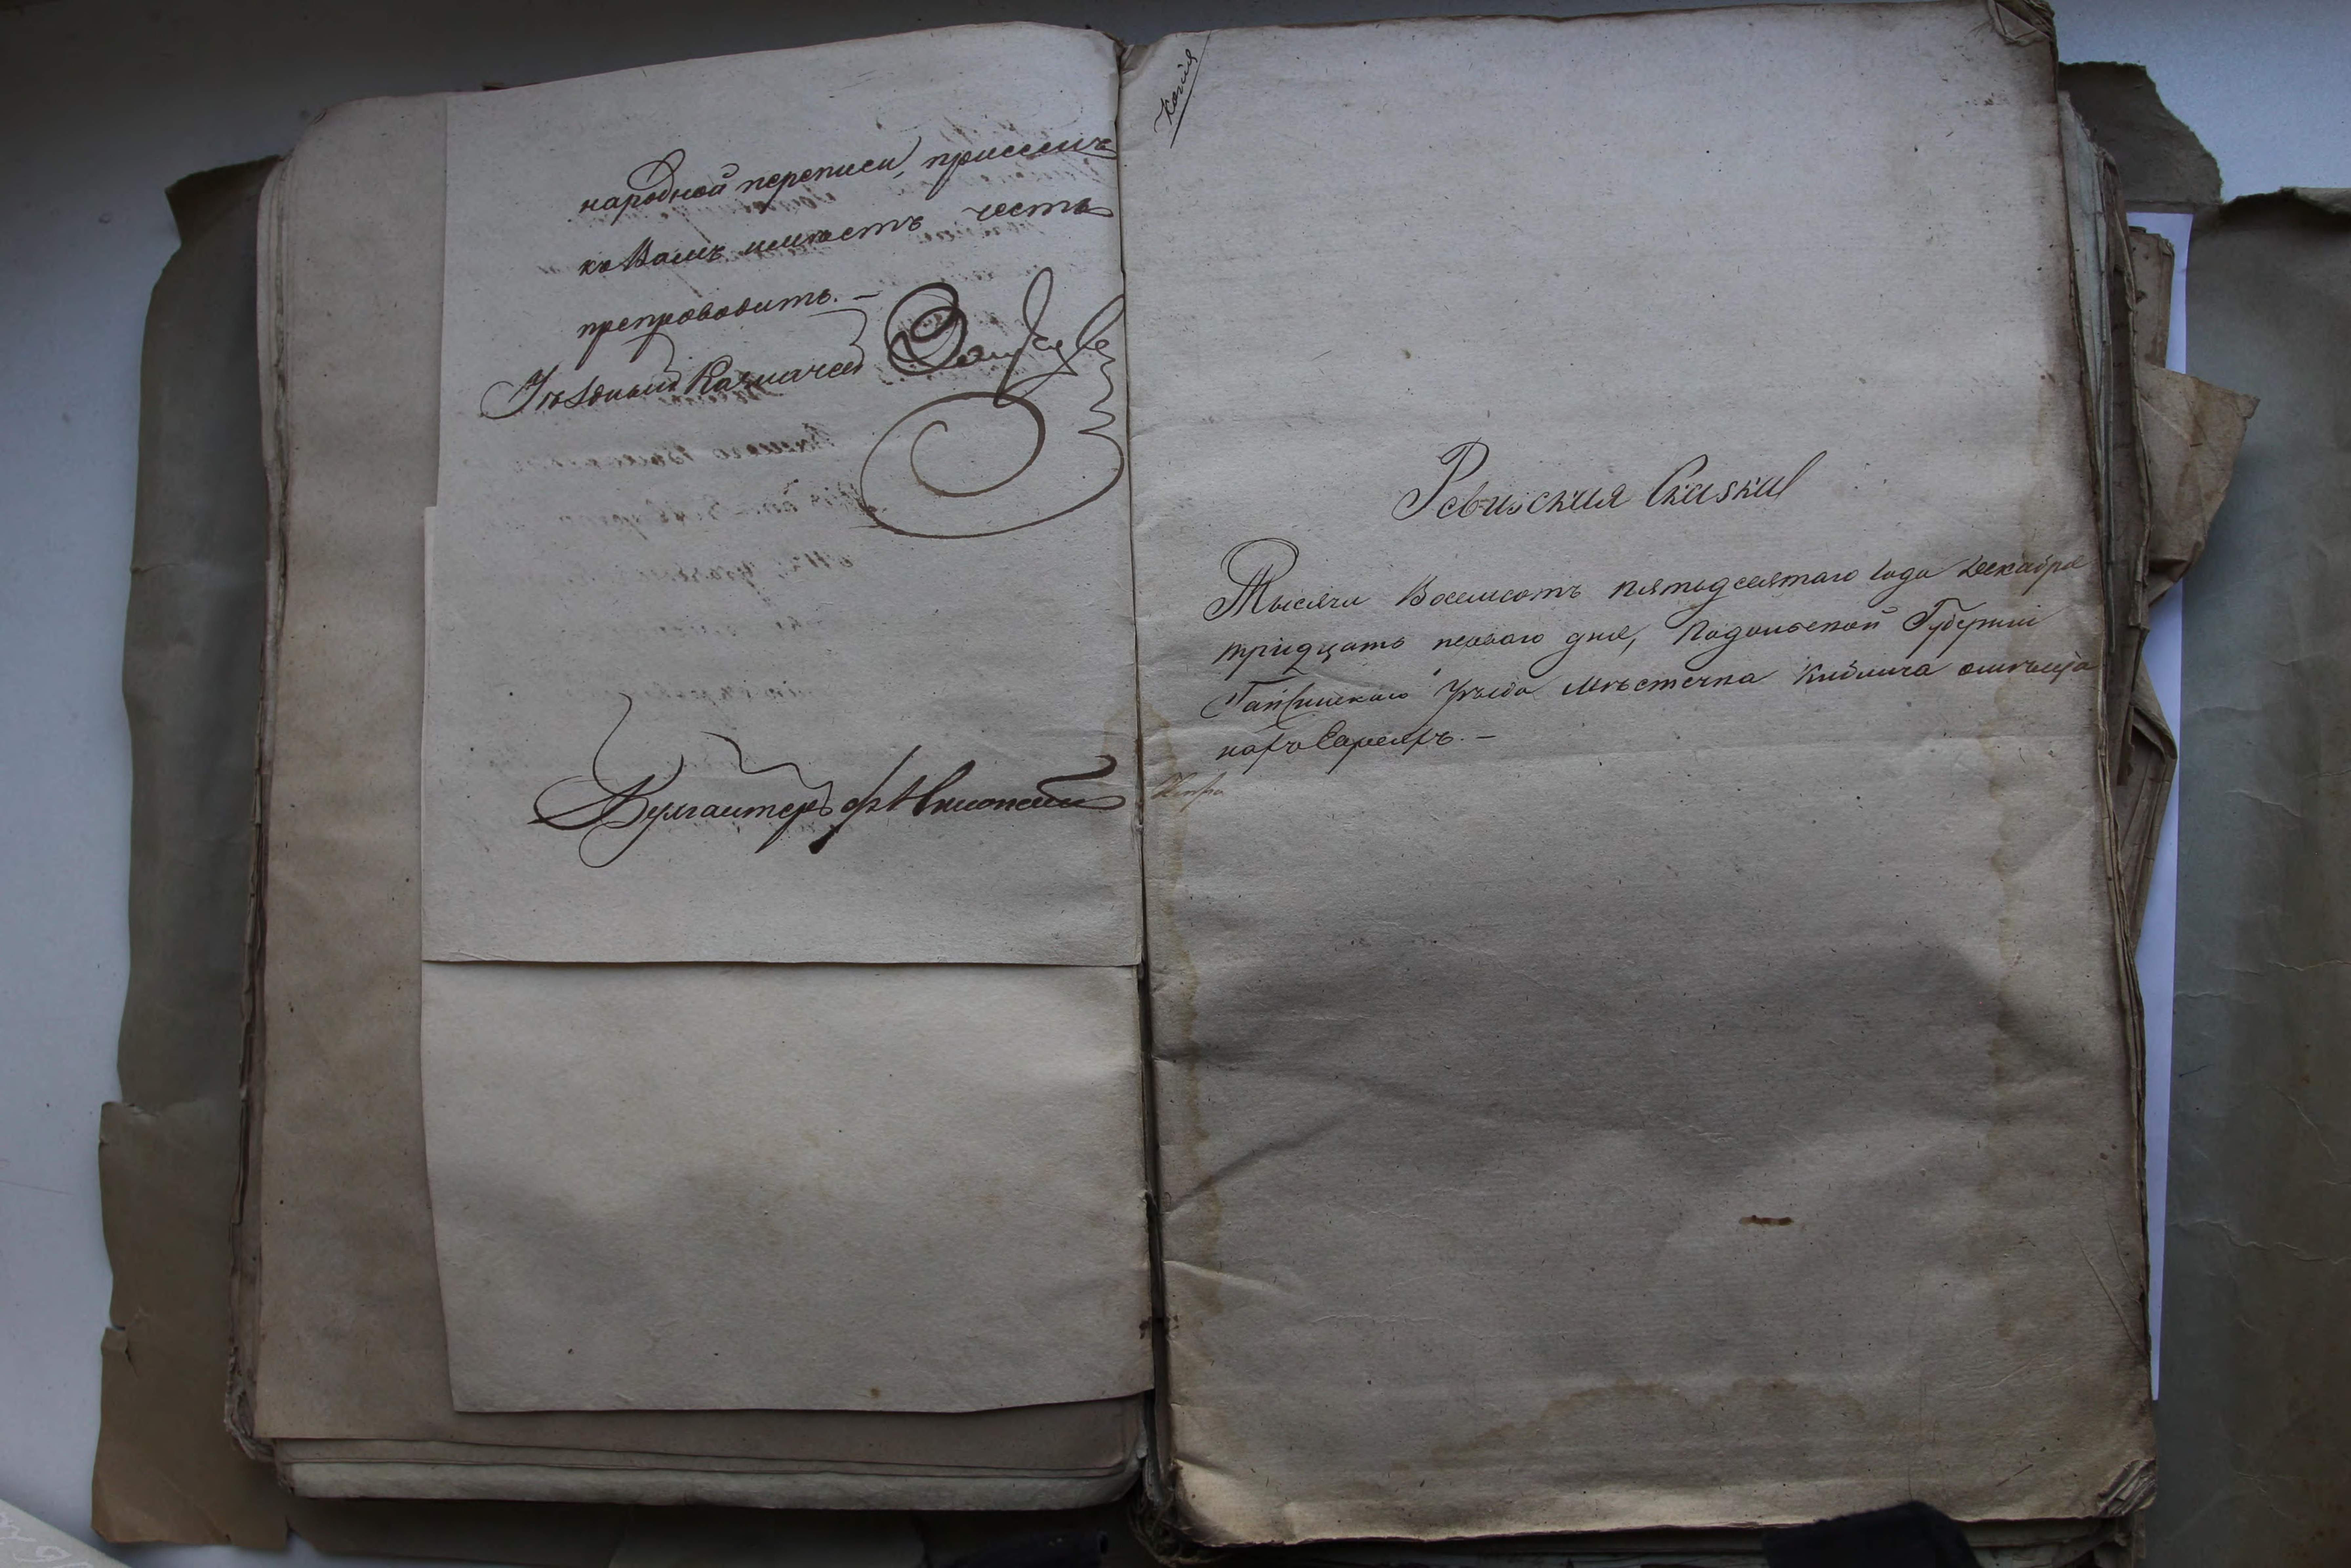 народной переписи, при семъ
къ Вамъ имѣетъ честь
препроводить. —
Уѣздный Казначей
Бухгалтеръ
Копія
Ревизская Сказка
Тысяча Восемсотъ пятьдесятаго Года Декабря
тридцать перваго дня, Подольской Губерніи
Гайсинскаго Уѣзда Мѣстечка Кублича о мѣща
нахъ Евреяхъ. —